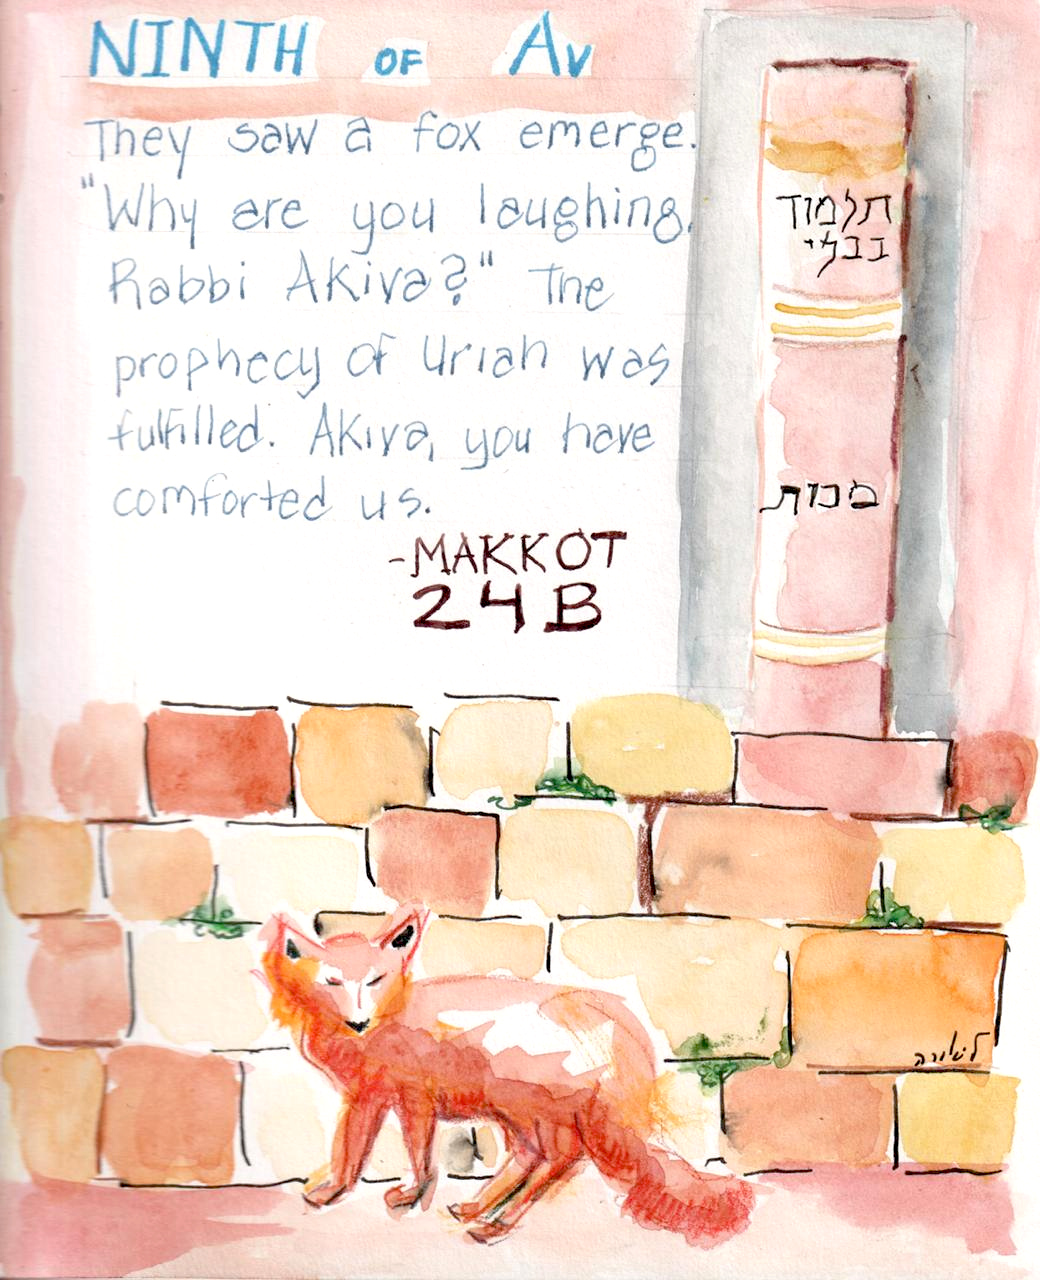 NINTH OF AV
They saw a fox emerge.
"Why are you laughing,
Rabbi Akiva?" The
prophecy of Uriah was
fulfilled. Akiva, you have
comforted us.
-MAKKOT
24B
תלמוד
בבלי
מכות